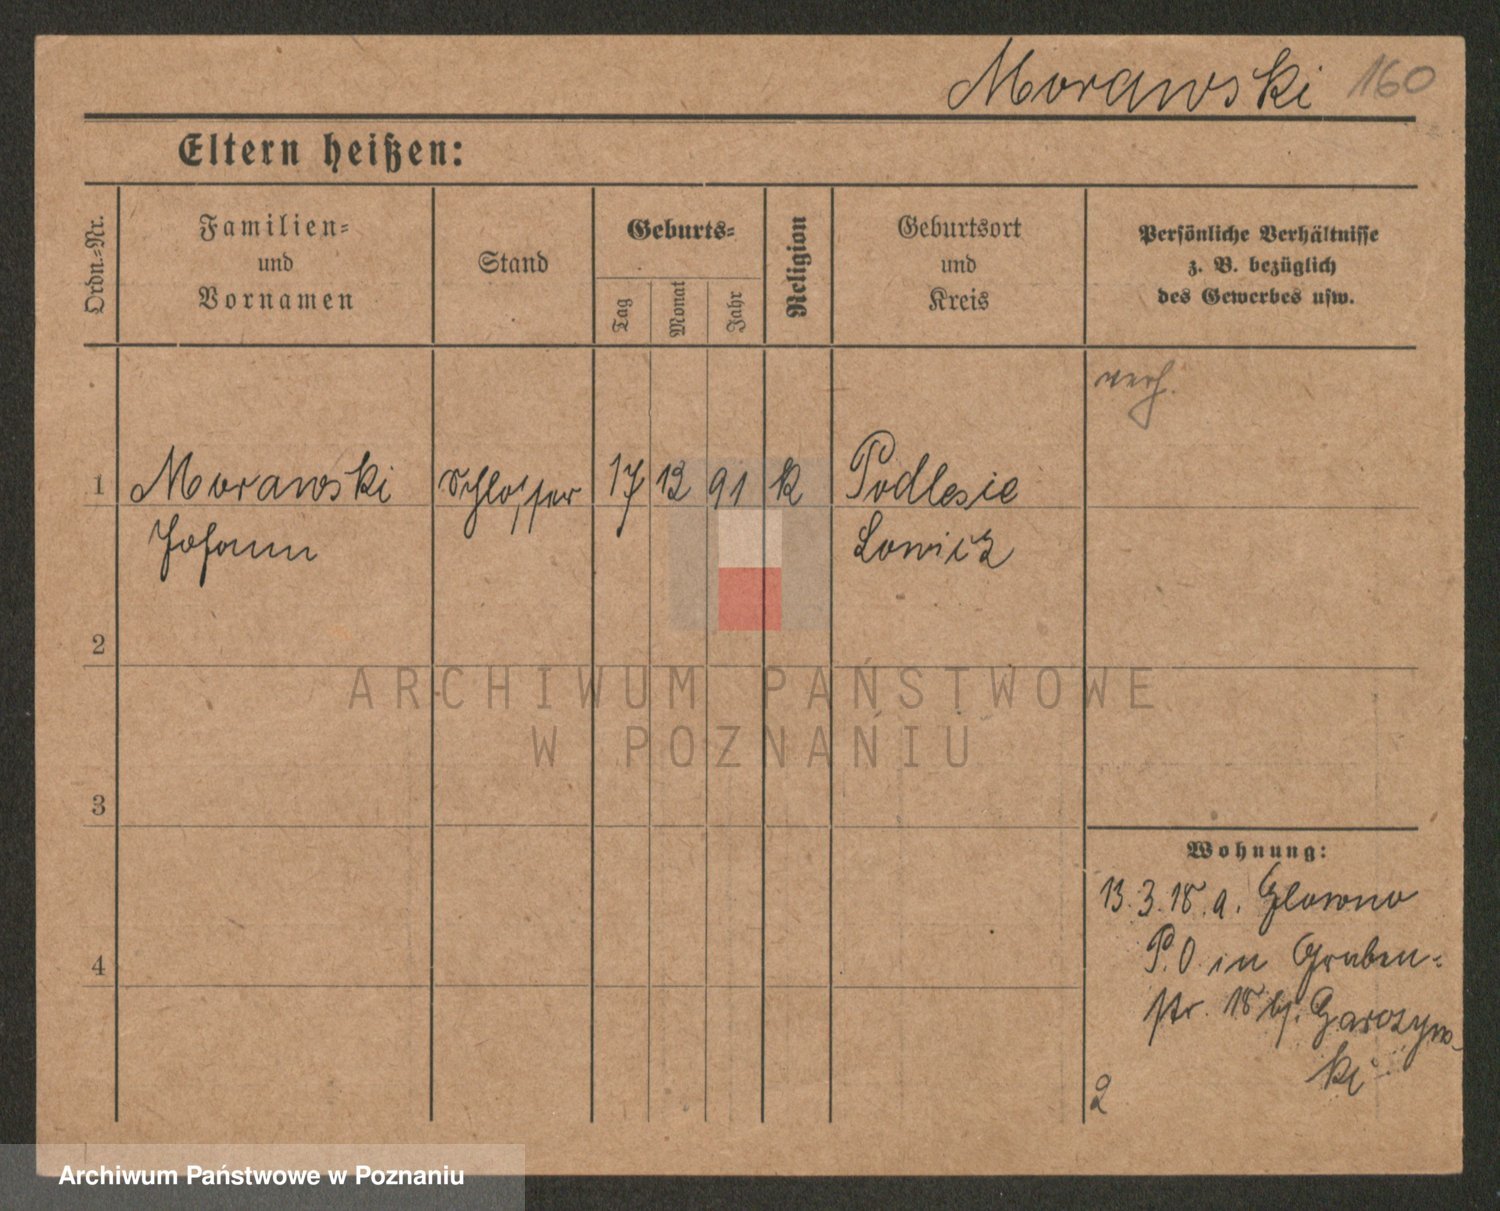 Morawski 160
Eltern heißen:
Ordn.-Nr.
Familien-
und
Vornamen
Stand
Geburts-
Tag
Monat
Jahr
Religion
Geburtsort
und
Kreis
Persönliche Verhältnisse
z. B. bezüglich
des Gewerbes usw.
verh.
1 Morawski Schlosser 17 12 91 k Podlesie
Johann Lowicz
2
3
4
Wohnung:
13.3.18. a. Glowno
P.O in Graben-
str. 18 bj.
ki
2
ARCHIWUM PAŃSTWOWE
W POZNANIU
Archiwum Państwowe w Poznaniu